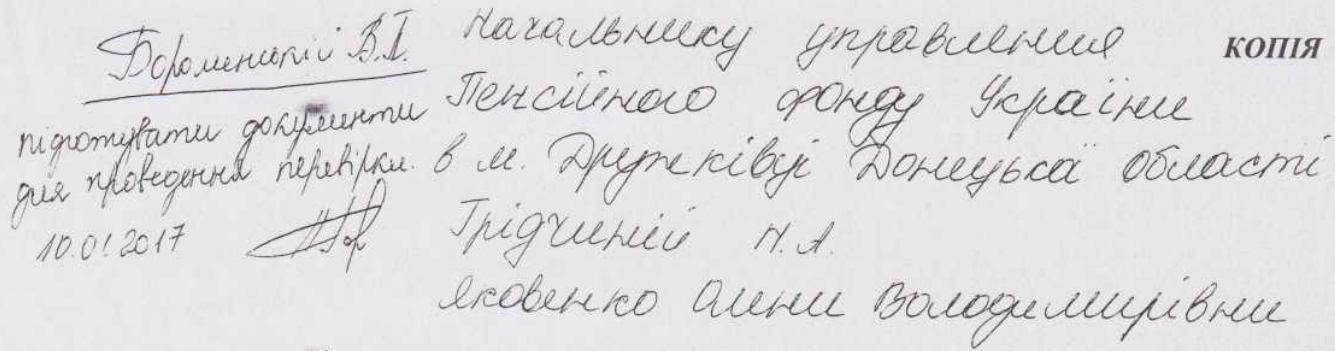 Бороменській В.П.
підготувати документи
для проведення перевірки.
10.01.2017
КОПІЯ
Начальнику управления
Пенсійного фонду України
в м. Дружківці Донецької області
Грідчиній Н.А.
Яковенко Олени Володимирівни